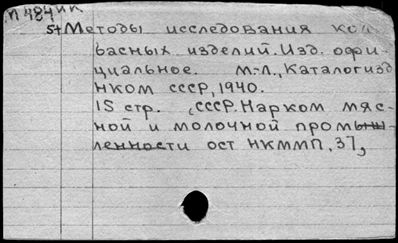 П484ИК
5+Методы исследования кол-
басных изделий. Изд. офи-
циальное. М.-Л., Каталогизд
НКОМ СССР, 1940.
15 стр. (СССР. Нарком мяс-
ной и молочной промыш-
ленности ОСТ НКММП, 37,